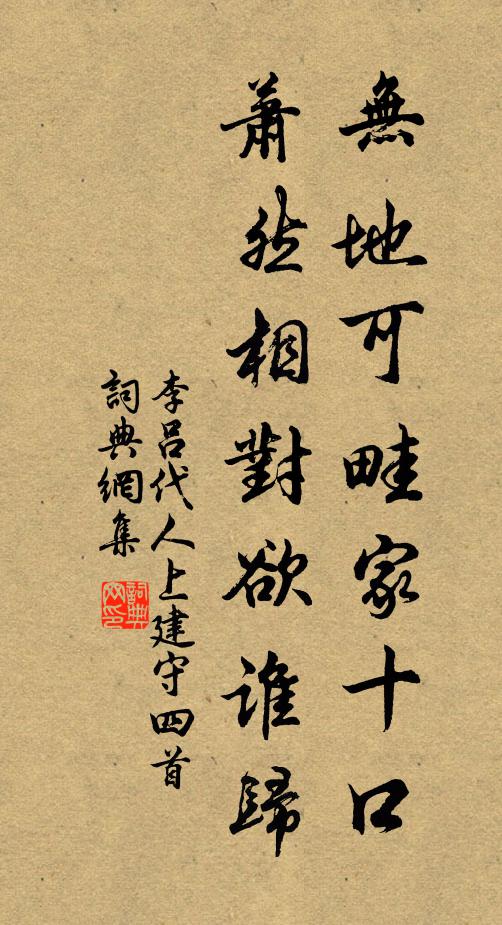 無地可畦家十口
蕭然相對欲誰歸
李呂代人上建守四首
詞典網集
詞典
网印